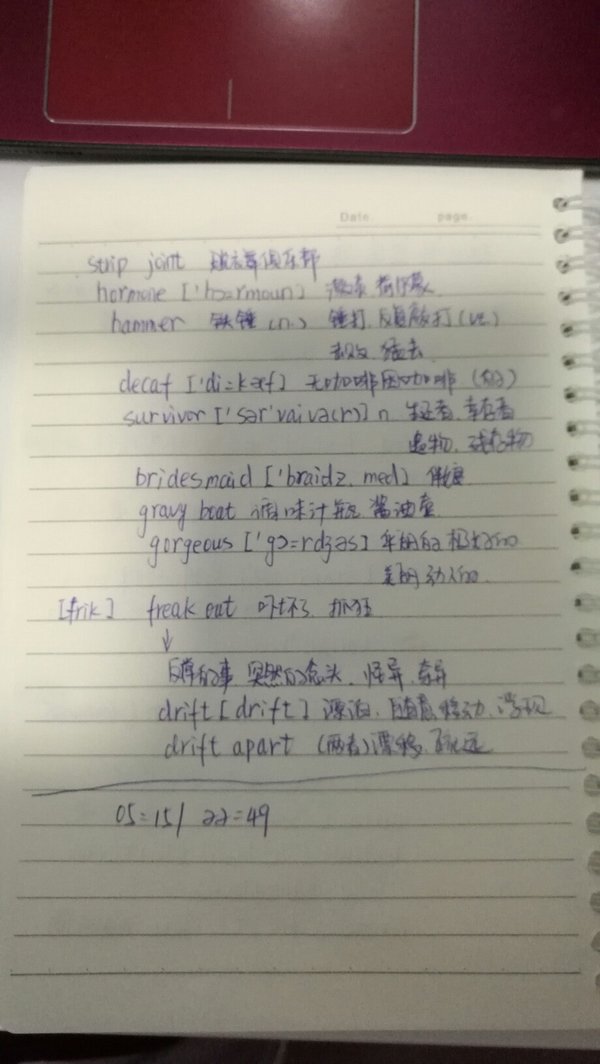 Date. page.
strip joint 脱衣舞俱乐部
hormone ['hɔ:rmoun] 激素, 荷尔蒙
hammer 铁锤 (n.) 锤打, 反复敲打 (ve.)
猛击
decaf ['di:kæf] 无咖啡因咖啡
survivor ['sər'vaivə(r)] n 生还者, 幸存者
遗物, 残存物
bridesmaid ['braidz,med] 伴娘
gravy boat 调味汁瓶 酱油壶
gorgeous ['gɔ:rdʒəs] 华丽的 极好的
美丽动人的
[frik] freak out 吓坏了 抓狂
↓
反常的事 突然的念头, 怪异, 奇异
drift [drift] 漂泊, 随意移动, 浮现
drift apart (两者) 漂移, 疏远
05:15 / 22:49